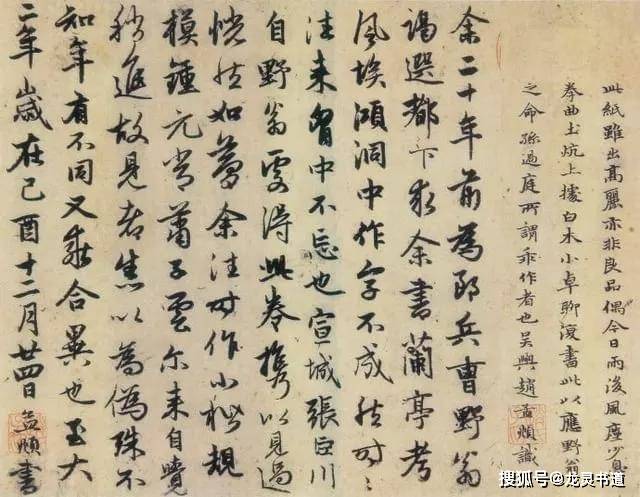 此紙雖出高麗亦非良品偶今日雨後風塵少息
拳曲土炕上據白木小卓聊復書此以應野翁
之命孫過庭所謂乖作者也吳興趙孟頫識
余二十年前為郎兵曹野翁
謁選都下求余書蘭亭考
風埃澒洞中作字不成然時〻
往来胷中不忘也宣城張巨川
自野翁處得此卷攜以見過
恍然如夢余往時作小楷規
模鍾元常蕭子雲尓来自覺
稍進故見者悉以為偽殊不
知年有不同又乖合異也至大
二年歲在己酉十二月廿四日孟頫書
搜狐号@龙灵书道